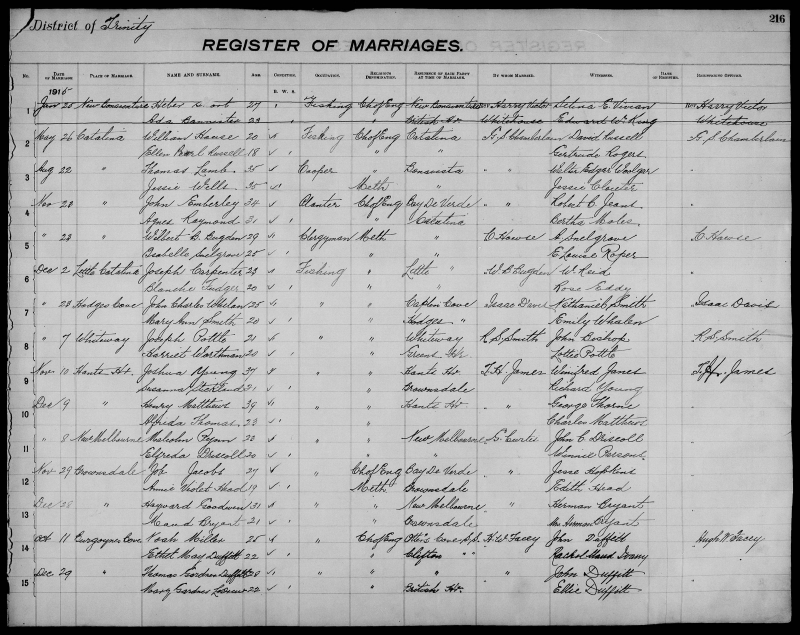 216
District of Trinity
REGISTER OF MARRIAGES.
No. DATE OF MARRIAGE. PLACE OF MARRIAGE. NAME AND SURNAME. AGE. CONDITION. OCCUPATION. RELIGIOUS DENOMINATION. RESIDENCE OF EACH PARTY AT TIME OF MARRIAGE. BY WHOM MARRIED. WITNESSES. DATE OF REGISTRY. REGISTERING OFFICER.
1915 B. W. S.
1 Jan 25 New Bonaventure 27 Fishing Ch of Eng New Bonaventure Harry Victor Selina E. Vivian Harry Victor
Eda Bannister 23 British Hr Whitehouse Edward Wm King Whitehouse
2 May 26 Catalina William House 20 Fishing Ch of Eng Catalina S Chamberlain David Russell S Chamberlain
Ellen Pearl Russell 18 " " Gertrude Rogers
3 Aug 22 " Thomas Lamb 35 Cooper " Bonavista " " Walter Edgar
Jessie Wells 25 Meth " Jessie Clouter
4 Nov 23 " John 34 Planter Ch of Eng Bay De Verde " " Robert C Jeans
Agnes Raymond 31 " Catalina Bertha Moles
5 " 23 " Wilbert B. Bugden 29 Clergyman Meth " C Howse Snelgrove C Howse
Isabella Snelgrove 25 " " E Louise Roper
6 Dec 2 Little Catalina Joseph Carpenter 23 Fishing " Little " W B Bugden W Reid
Blanche 20 " " Rose Eddy
7 " 23 Hodges Cove John Charles Whalen 25 " " Caplin Cove Isaac Davis Nathaniel Smith Isaac Davis
Mary Ann Smith 20 " Hodges " Emily Whalen
8 " 7 Whiteway Joseph Pottle 21 " " Whiteway R S Smith John Bishop R S Smith
Harriet 20 " Greens Hr. Lottie Pottle
9 Nov 10 Hants Hr. Joshua Young 37 " " Hants Hr J. H. James Winifred Janes James
Susanna 21 " Brownsdale Richard Young
10 Dec 9 " Henry Matthews 39 " " Hants Hr " " George Thorne
Alfreda Thomas 23 " " Charles Matthews
11 " 8 New Melbourne Malcolm Pynn 23 " " New Melbourne S. Curtis John C Driscoll
Elfreda Driscoll 20 " " Winnie Parsons
12 Nov 29 Brownsdale Job Jacobs 27 " Ch of Eng Bay De Verde " " Jesse Hopkins
Annie Violet Head 19 Meth. Brownsdale Edith Head
13 Dec 28 " Hayward Goodwin 31 " " New Melbourne Herman Bryant
Maud Bryant 21 " Brownsdale Mrs Herman Bryant
14 Oct 11 Burgoynes Cove Noah Miller 25 " Ch of Eng Cove H. W. Facey John Duffett Hugh W Facey
Ethel May Duffett 22 " Clifton Rachel Maud Ivany
15 Dec 29 " Thomas Gordon Duffett 20 " " " " John Duffitt
Mary 22 " British Hr. Ellie Duffitt